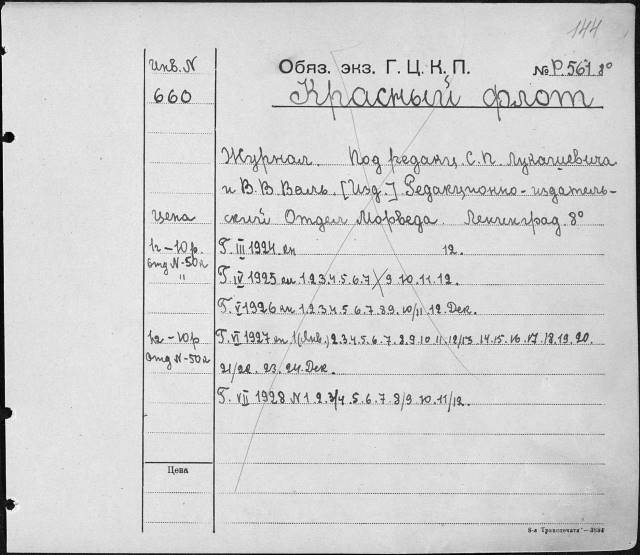 144
Инв. N
Обяз. экз. Г. Ц. К. П.
№ Р. 561 8°
660
Красный флот
Журнал. Под редакц. С. П. Лукашевича
и В. В. Валь. [Изд.] Редакционно-издатель-
Цена
ский Отдел Морведа. Ленинград. 8°
1г - 10 р.
отд N - 50 к
"
Г. III 1924 еп 12.
Г. IV 1925 еп 1. 2. 3. 4. 5. 6. 7 9 10. 11. 12.
Г. V 1926 еп 1. 2. 3. 4. 5. 6. 7. 8. 9. 10/11 12. Дек.
1г - 10 р
отд N - 50 к
Г. VI 1927 еп 1 (Янв.) 2. 3. 4. 5. 6. 7. 8. 9. 10 11. 12/13 14. 15. 16. 17. 18. 19. 20.
21/22. 23. 24. Дек.
Г. VII 1928 N 1 2. 3/4 5. 6. 7 8/9 10. 11/12.
Цена
8-я Транспечати — 3834